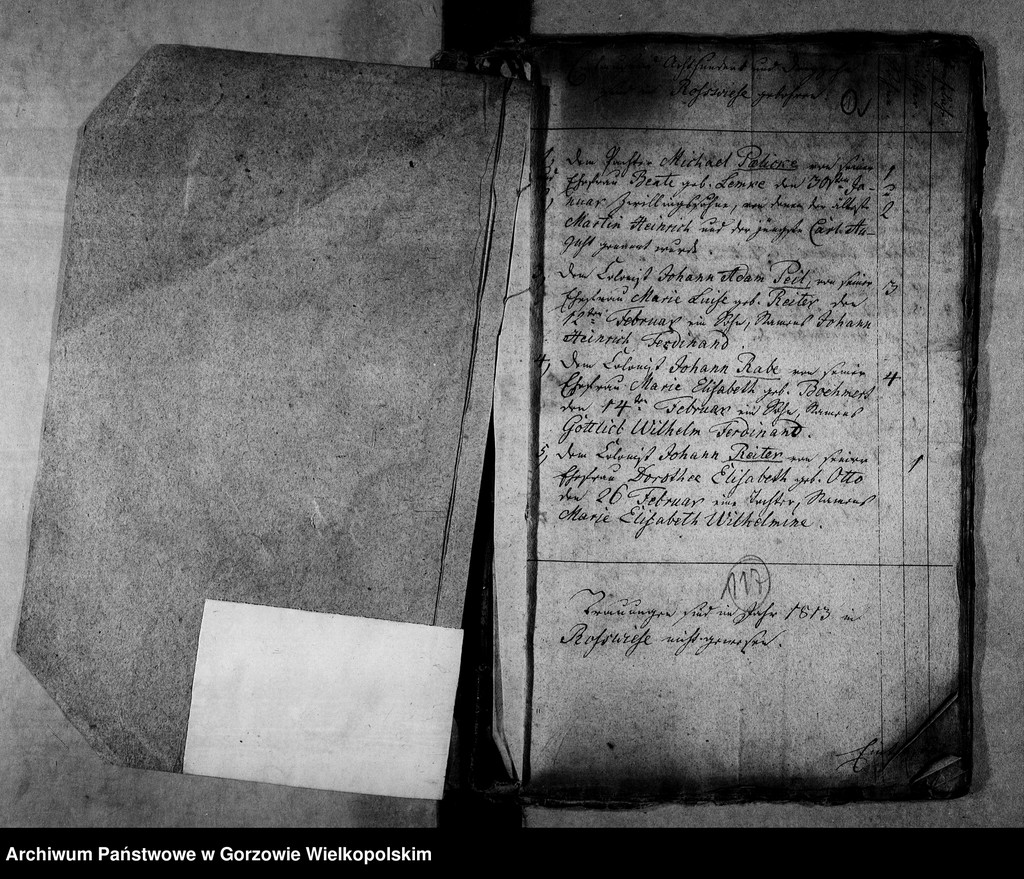 Achthundert und
Rosswiese gebohren.
1, dem Pachter Michael Poelicke von seiner 1
Ehefrau Beate geb. Lemke den 30sten Ja-
nuar Zwillingssöhne, von denen der älteste 2
Martin Heinrich und der jüngste Carl Au-
gust genannt wurde.
dem Colonist Johann Adam Peil, von seiner 3
Ehefrau Marie Luise geb. Reiter den
12ten Februar ein Sohn, Namens Johann
Heinrich Ferdinand.
4, dem Colonist Johann Rabe von seiner 4
Ehefrau Marie Elisabeth geb. Boehmert
den 14ten Februar ein Sohn, Namens
Gottlieb Wilhelm Ferdinand.
5, dem Colonist Johann Reiter von seiner 1
Ehefrau Dorothee Elisabeth geb. Otto
den 26 Februar eine Tochter, Namens
Marie Elisabeth Wilhelmine.
117
Trauungen sind im Jahr 1813 in
Rosswiese nicht gewesen.
Archiwum Państwowe w Gorzowie Wielkopolskim